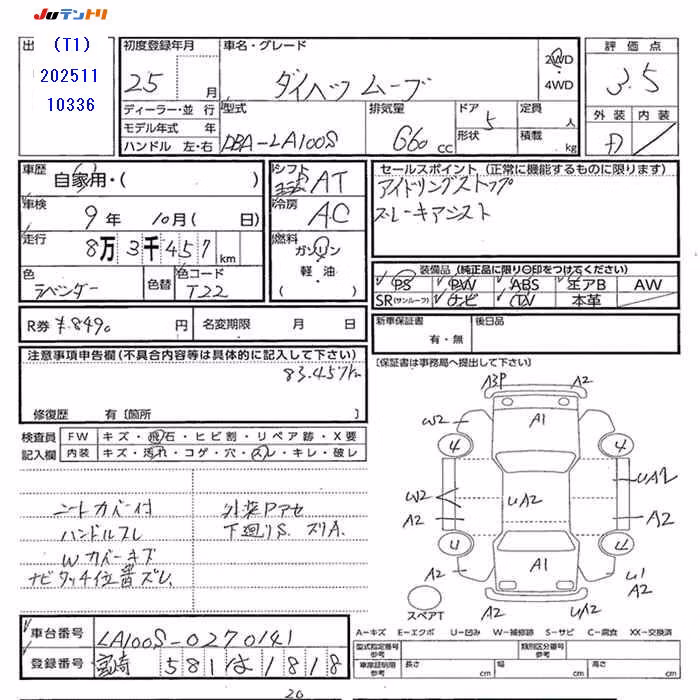 Juテントリ
出
(T1)
202511
10336
初度登録年月
25 月
車名・グレード
ダイハツ ムーブ
2WD
4WD
評価点
3.5
外装 内装
D
ディーラー・並 行
モデル年式 年
ハンドル 左・右
型式
DBA-LA100S
排気量
660 CC
ドア
形状
5
定員 人
積載 kg
車歴
自家用・( )
車検
9 年 10 月( 日)
走行
8万3千457 km
色
ラベンダー
色替
色コード
T22
シフト
AT
冷房
AC
燃料
ガソリン
軽・油
( )
セールスポイント (正常に機能するものに限ります)
アイドリングストップ
ブレーキアシスト
装備品 (純正品に限り○印をつけてください)
PS PW ABS エアB AW
SR(サンルーフ) ナビ TV 本革
R券 ¥8490 円
名変期限 月 日
新車保証書
有・無
後日品
〔保証書は事務局へ提出して下さい〕
注意事項申告欄(不具合内容等は具体的に記入して下さい)
83.457km
修復歴 有〔箇所 〕
検査員
記入欄
FW キズ・飛石・ヒビ割・リペア跡・X要
内装 キズ・汚れ・コゲ・穴・スレ・キレ・破レ
シートカバー付
ハンドルスレ
Wカバーキズ
ナビタッチ位置ズレ
外装Pアセ
下廻りS.ズリA.
A3P
A2
A1
W2
4
4
UA2
W2
UA2
A2
A2
4
4
A1
A2
U1
A2
スペアT
A2
UA2
A2
A-キズ E-エクボ U-凹み W-補修跡 S-サビ C-腐食 XX-交換済
車台番号
LA100S-0270141
登録番号
宮崎 581 は 1818
型式指定番号
参考
類別区分番号
参考
車庫証明用
参考
長さ cm
幅 cm
高さ cm
20